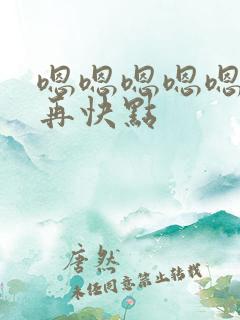 嗯嗯嗯嗯嗯
再快點
唐然
未经同意禁止转载